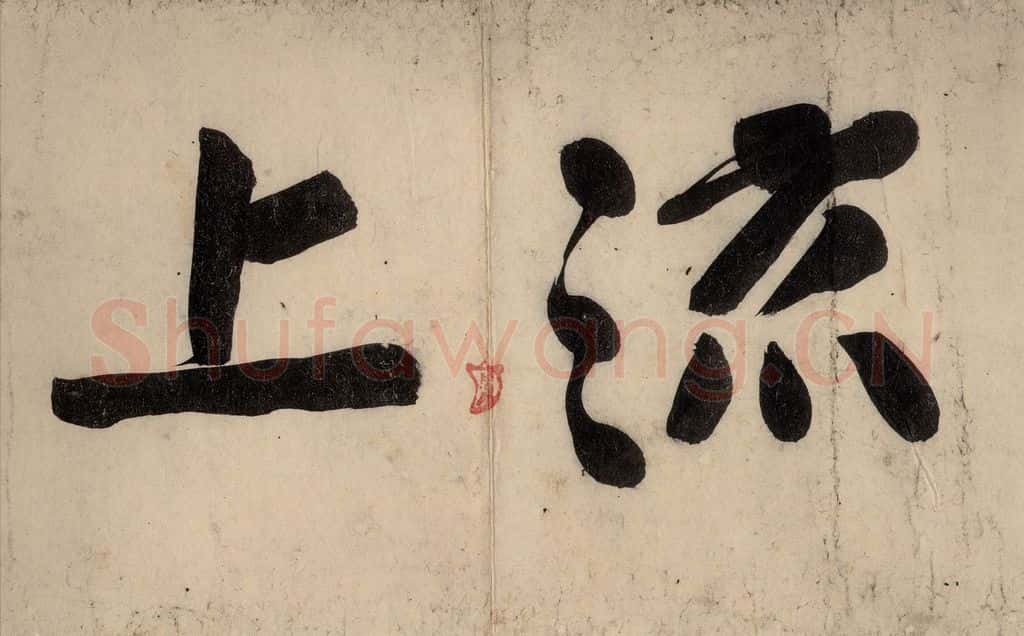 流上
Shufawang.CN